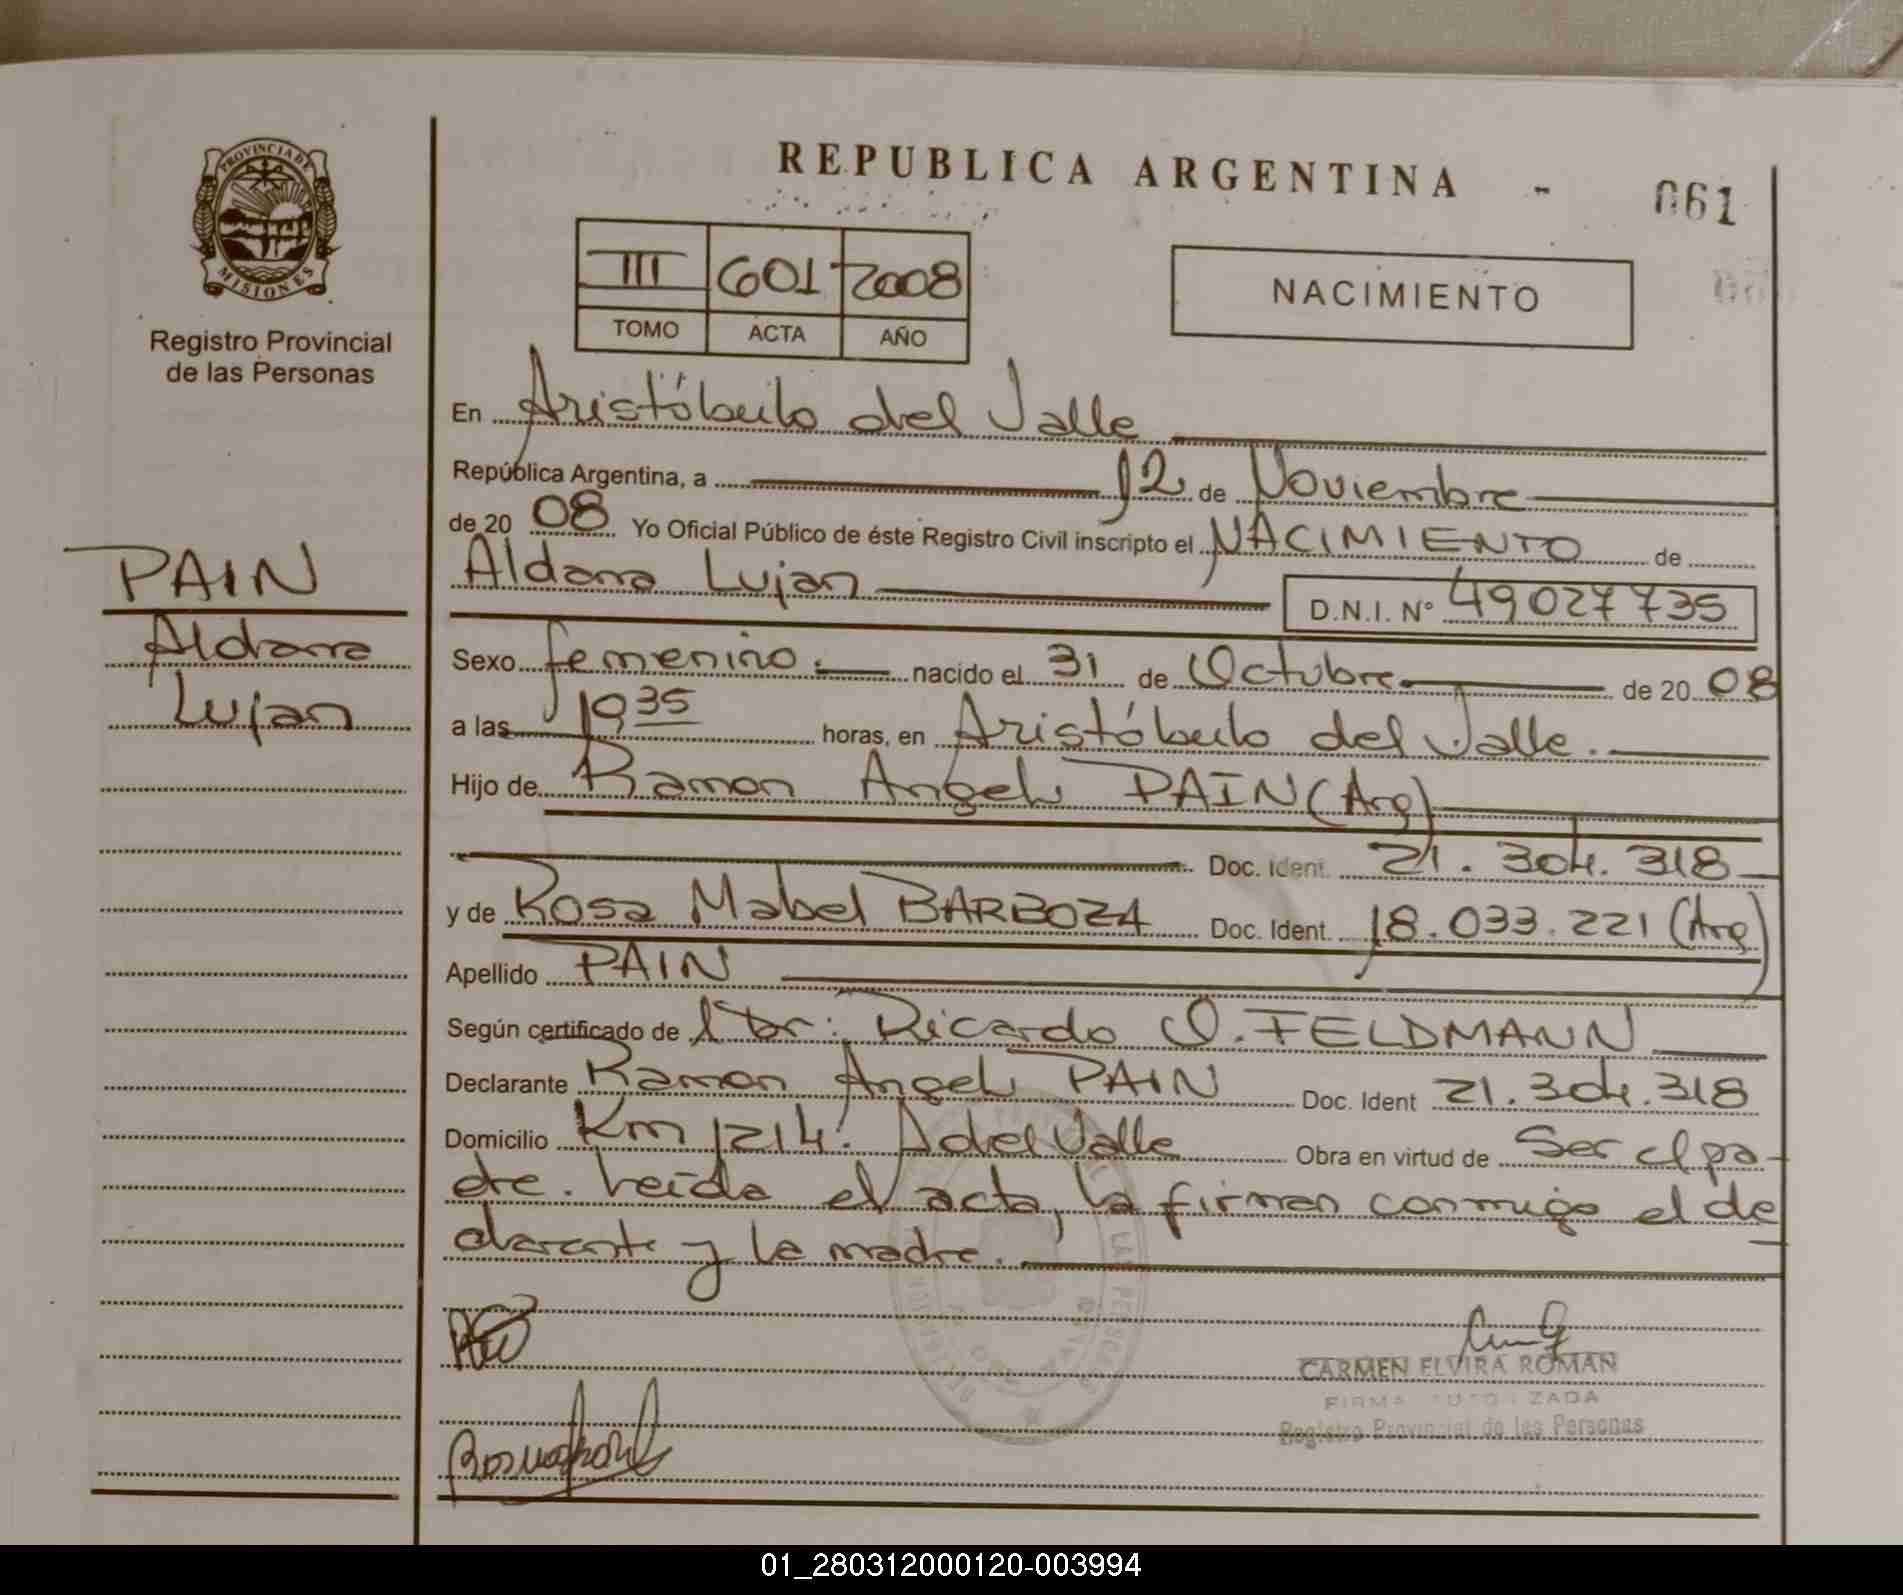 REPUBLICA ARGENTINA - 061
PROVINCIA DE
MISIONES
Registro Provincial
de las Personas
III 601 2008
TOMO ACTA AÑO
NACIMIENTO
PAIN
Aldana
Lujan
En Aristóbulo del Valle
República Argentina, a 12 de Noviembre
de 20 08 Yo Oficial Público de éste Registro Civil inscripto el NACIMIENTO de
Aldana Lujan D.N.I. N° 49027735
Sexo femenino. nacido el 31 de Octubre de 20 08
a las 19 35 horas, en Aristóbulo del Valle.
Hijo de Ramon Angel PAIN (Arg)
Doc. Ident. 21.304.318
y de Rosa Mabel BARBOZA Doc. Ident. 18.033.221 (Arg)
Apellido PAIN
Según certificado de Dr: Ricardo O. FELDMANN
Declarante Ramon Angel PAIN Doc. Ident 21.304.318
Domicilio Km 1214. A del Valle Obra en virtud de Ser el pa-
dre. Leída el acta, la firman conmigo el de
clarante y la madre.
CARMEN ELVIRA ROMAN
FIRMA AUTORIZADA
Registro Provincial de las Personas
01_280312000120-003994